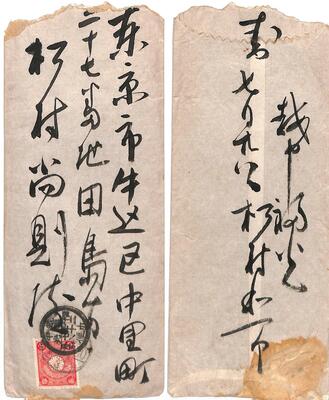 東京市牛込区中里町
二十七番地田島方
杉村尚則様
越中福光
七月九日 杉村和一郎